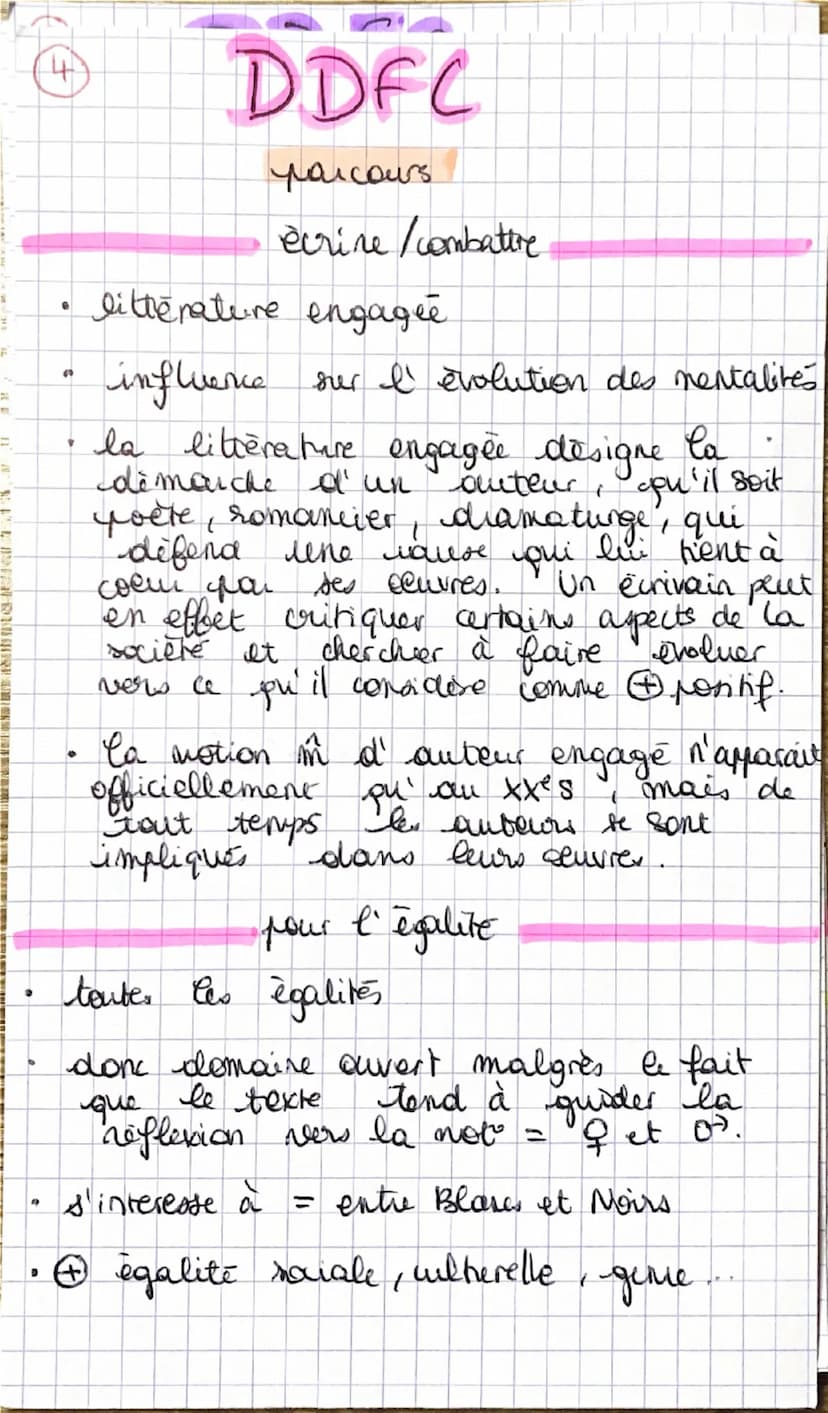 4
DDFC
parcours
écrire / combattre
• littérature engagée
• influence sur l'évolution des mentalités
• la littérature engagée désigne la
démarche d'un auteur, qu'il soit
poète, romancier, dramaturge, qui
défend une cause qui lui tient à
coeur par ses oeuvres. Un écrivain peut
en effet critiquer certains aspects de la
société et chercher à faire évoluer
vers ce qu'il considère comme ⊕ positif.
• la notion m̂ d'auteur engagé n'apparait
officiellement qu'au XXe s, mais de
tout temps les auteurs se sont
impliqués dans leurs oeuvres.
pour l'égalité
• toutes les égalités
• donc domaine ouvert malgrès le fait
que le texte tend à guider la
réflexion vers la not° = ♀ et ♂.
• s'interesse à = entre Blancs et Noirs
• ⊕ égalité sociale, culturelle, genre...